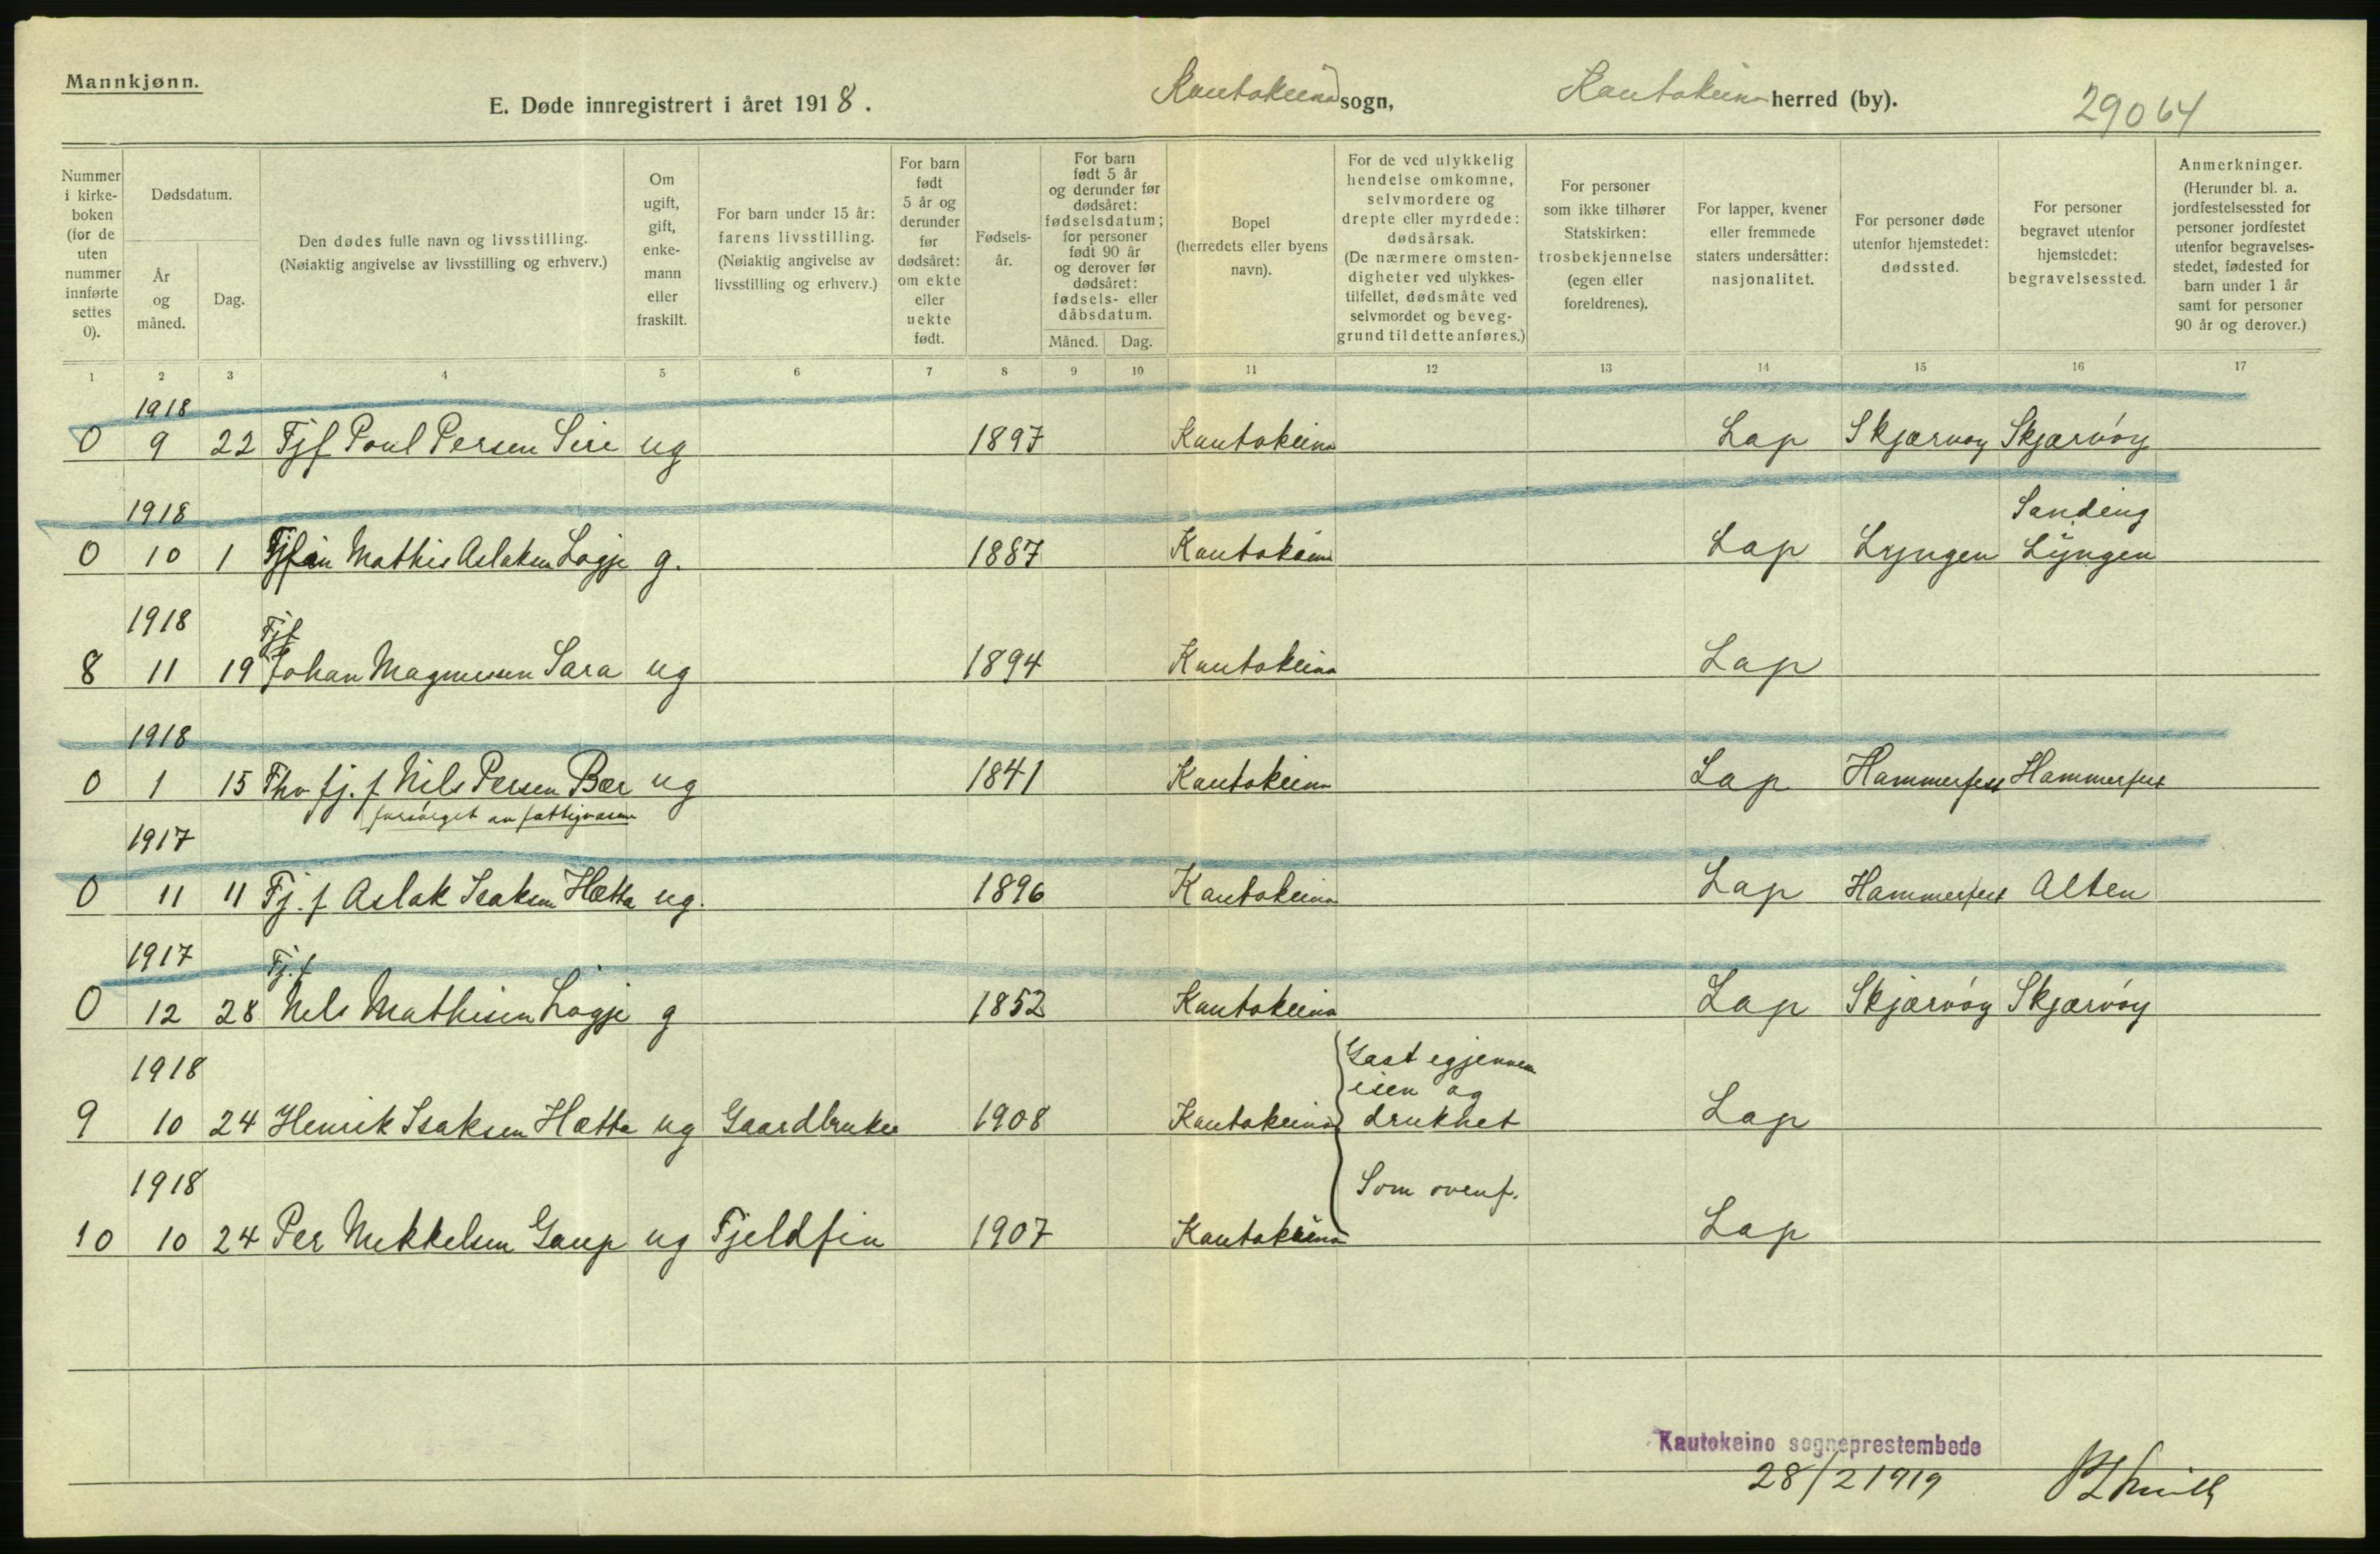 Mannkjønn.
E. Døde innregistrert i året 1918. Kautokeino sogn, Kautokeino herred (by). 29064
Nummer i kirke-boken (for de uten nummer innførte settes 0).
Dødsdatum.
År og måned.
Dag.
Den dødes fulle navn og livsstilling.
(Nøiaktig angivelse av livsstilling og erhverv.)
Om ugift, gift, enke-mann eller fraskilt.
For barn under 15 år: farens livsstilling. (Nøiaktig angivelse av livsstilling og erhverv.)
For barn født 5 år og derunder før dødsåret: om ekte eller uekte født.
Fødsels-år.
For barn født 5 år og derunder før dødsåret: fødselsdatum; for personer født 90 år og derover før dødsåret: fødsels- eller dåbsdatum.
Måned. Dag.
Bopel (herredets eller byens navn).
For de ved ulykkelig hendelse omkomne, selvmordere og drepte eller myrdede: dødsårsak. (De nærmere omsten-digheter ved ulykkes-tilfellet, dødsmåte ved selvmordet og beveg-grund til dette anføres.)
For personer som ikke tilhører Statskirken: trosbekjennelse (egen eller foreldrenes).
For lapper, kvener eller fremmede staters undersåtter: nasjonalitet.
For personer døde utenfor hjemstedet: dødssted.
For personer begravet utenfor hjemstedet: begravelsessted.
Anmerkninger. (Herunder bl. a. jordfestelsessted for personer jordfestet utenfor begravelses-stedet, fødested for barn under 1 år samt for personer 90 år og derover.)
1 2 3 4 5 6 7 8 9 10 11 12 13 14 15 16 17
1918
0 9 22 Fjf Poul Persen Siri ug 1897 Kautokeino Lap Skjærvøy Skjærvøy
1918 Sandeng
0 10 1 Mathis Aslaksen Logje g. 1887 Kautokeino Lap Lyngen Lyngen
1918 Fjf
8 11 19 Johan Magnusen Sara ug 1894 Kautokeino Lap
1918
0 1 15 Fhv fj. f Nils Persen Bær ug 1841 Kautokeino Lap Hammerfest Hammerfest
forsørget av fattigvæsen
1917
0 11 11 Fj. f Aslak Isaksen Hætta ug. 1896 Kautokeino Lap Hammerfest Alten
1917 Fj. f
0 12 28 Nils Mathisen Logje g 1852 Kautokeino Lap Skjærvøy Skjærvøy
1918 Gaat egjennem
isen og
9 10 24 Henrik Isaksen Hætta ug Gaardbruker 1908 Kautokeino druknet Lap
1918 Som ovenf.
10 10 24 Per Mikkelsen Gaup ug Fjeldfin 1907 Kautokeino Lap
Kautokeino sogneprestembede
28/2 1919